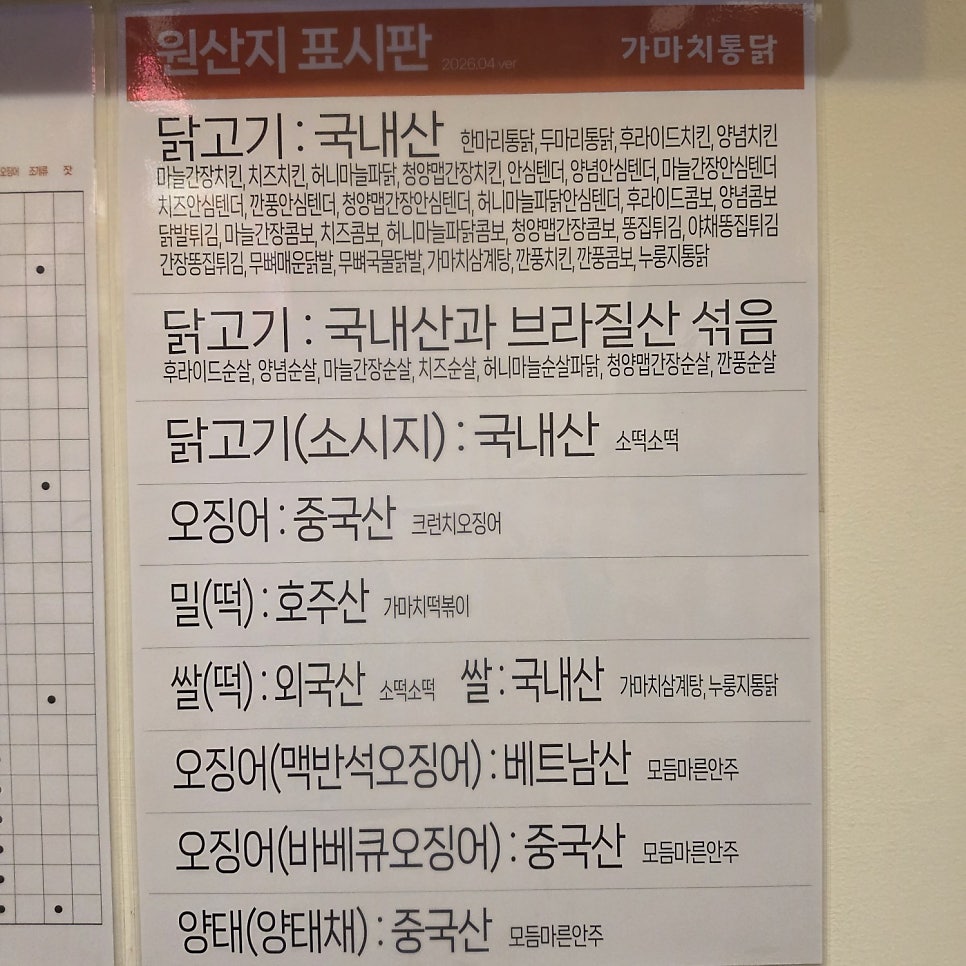 원산지 표시판 2026.04 ver 가마치통닭
닭고기 : 국내산 한마리통닭, 두마리통닭, 후라이드치킨, 양념치킨
마늘간장치킨, 치즈치킨, 허니마늘파닭, 청양맵간장치킨, 안심텐더, 양념안심텐더, 마늘간장안심텐더
치즈안심텐더, 깐풍안심텐더, 청양맵간장안심텐더, 허니마늘파닭안심텐더, 후라이드콤보, 양념콤보
닭발튀김, 마늘간장콤보, 치즈콤보, 허니마늘파닭콤보, 청양맵간장콤보, 똥집튀김, 야채똥집튀김
간장똥집튀김, 무뼈매운닭발, 무뼈국물닭발, 가마치삼계탕, 깐풍치킨, 깐풍콤보, 누룽지통닭
닭고기 : 국내산과 브라질산 섞음
후라이드순살, 양념순살, 마늘간장순살, 치즈순살, 허니마늘순살파닭, 청양맵간장순살, 깐풍순살
닭고기(소시지) : 국내산 소떡소떡
오징어 : 중국산 크런치오징어
밀(떡) : 호주산 가마치떡볶이
쌀(떡) : 외국산 소떡소떡 쌀 : 국내산 가마치삼계탕, 누룽지통닭
오징어(맥반석오징어) : 베트남산 모듬마른안주
오징어(바베큐오징어) : 중국산 모듬마른안주
양태(양태채) : 중국산 모듬마른안주
오징어 조개류 잣